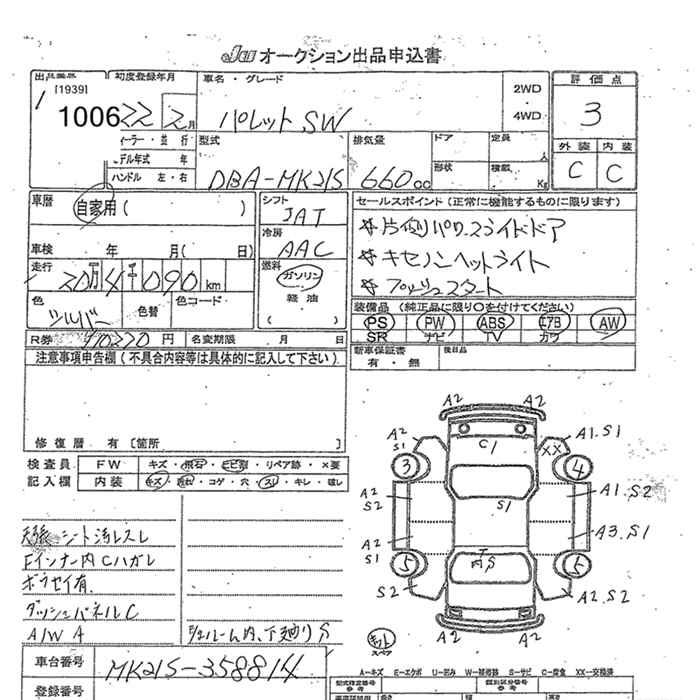 JU オークション出品申込書
出品番号 初度登録年月 車名・グレード 2WD・4WD 評価点
[1939]
1006 22 2月 パレット SW 3
ィーラー・並行 型式 排気量 ドア 定員 人 外装 内装
デル年式 年 形状 積載 Kg
ハンドル 左・右 DBA-MK21S 660cc C C
車歴 自家用( ) シフト JAT セールスポイント(正常に機能するものに限ります)
*片側パワースライドドア
車検 年 月( 日) 冷房 AAC *キセノンヘッドライト
走行 20万4千090km 燃料 ガソリン・軽油( ) *プッシュスタート
色 シルバー 色替 色コード 装備品(純正品に限り○を付けてください)
PS PW ABS エアB AW
SR ナビ TV カワ
R券 円 名変期限 月 日 新車保証書 有・無 後日品
注意事項申告欄(不具合内容等は具体的に記入して下さい)
修復歴 有〔箇所 〕
検査員 FW キズ・飛石・ヒビ割・リペア跡・×要
記入欄 内装 キズ・コゲ・穴・スレ・キレ・破レ
天張シート汚レスレ
Fインナー内Cハガレ
サビ有
ダッシュパネルC
A/W A
ルーム内、下廻りS
車台番号 MK21S-358814
登録番号
A2 A2
A2 S1 C1 XX A1.S1
3 4
A2 S2 S1 A1.S2
A2 S1 A3.S1
5 5
S2 内S A2.S2
A2 A2
スペア
A=キズ E=エクボ U=凹み W=補修跡 S=サビ C=腐食 XX=交換済
型式指定番号 類別区分番号
参考 参考